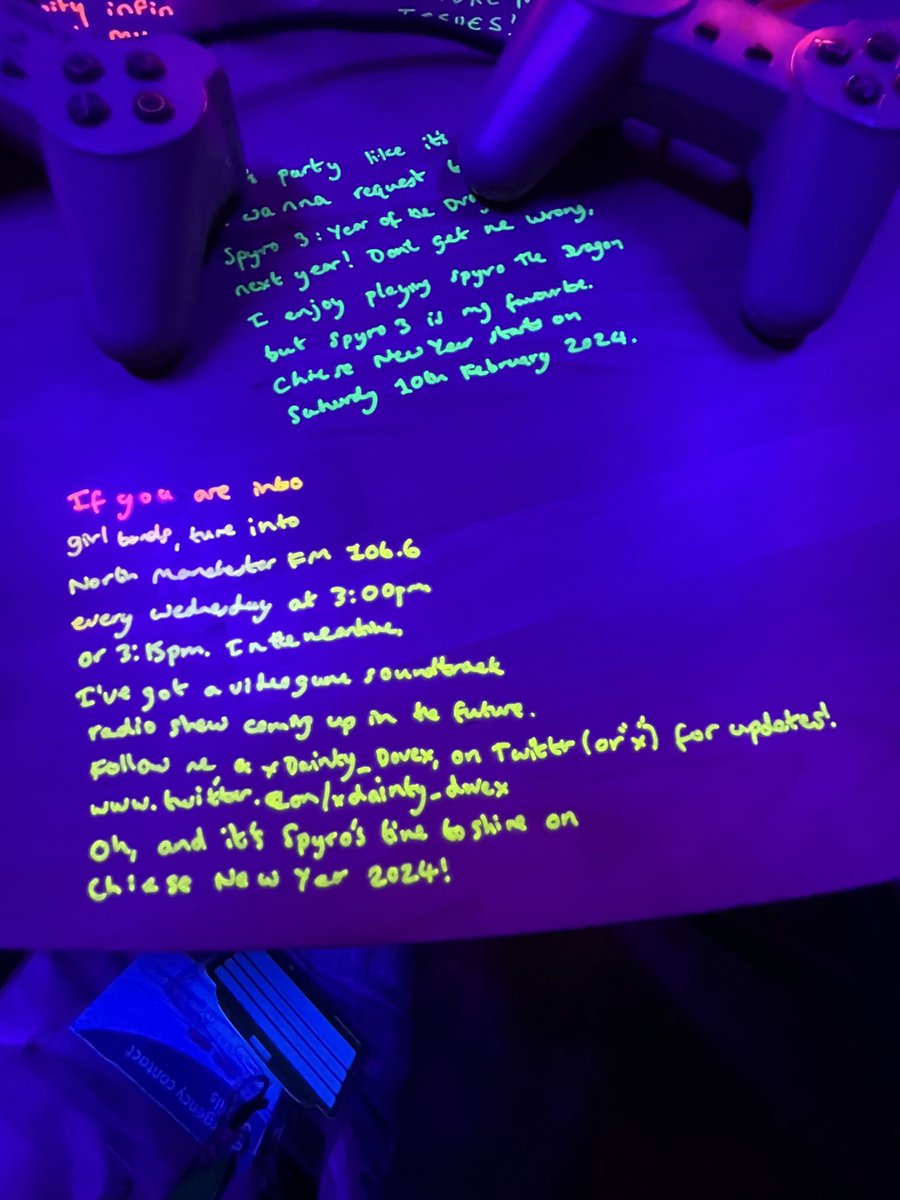 ity infin
ISSUES!
party like it's
wanna request
Spyro 3: Year of the Drag
next year! Dont get me wrong,
I enjoy playing Spyro The Dragon
but Spyro 3 is my favourite.
Chiese New Year starts on
Saturday 10th February 2024.
If you are into
girl bands, tune into
North Manchester FM 106.6
every wednesday at 3:00pm
or 3:15pm. In the meantime,
I've got a videogame soundtrack
radio show coming up in the future.
Follow me @ xDainty_Dovex, on Twitter (or "x") for updates!
www.twitter.com/xdainty_dovex
Oh, and it's Spyro's time to shine on
Chiese New Year 2024!
gency contact
ils